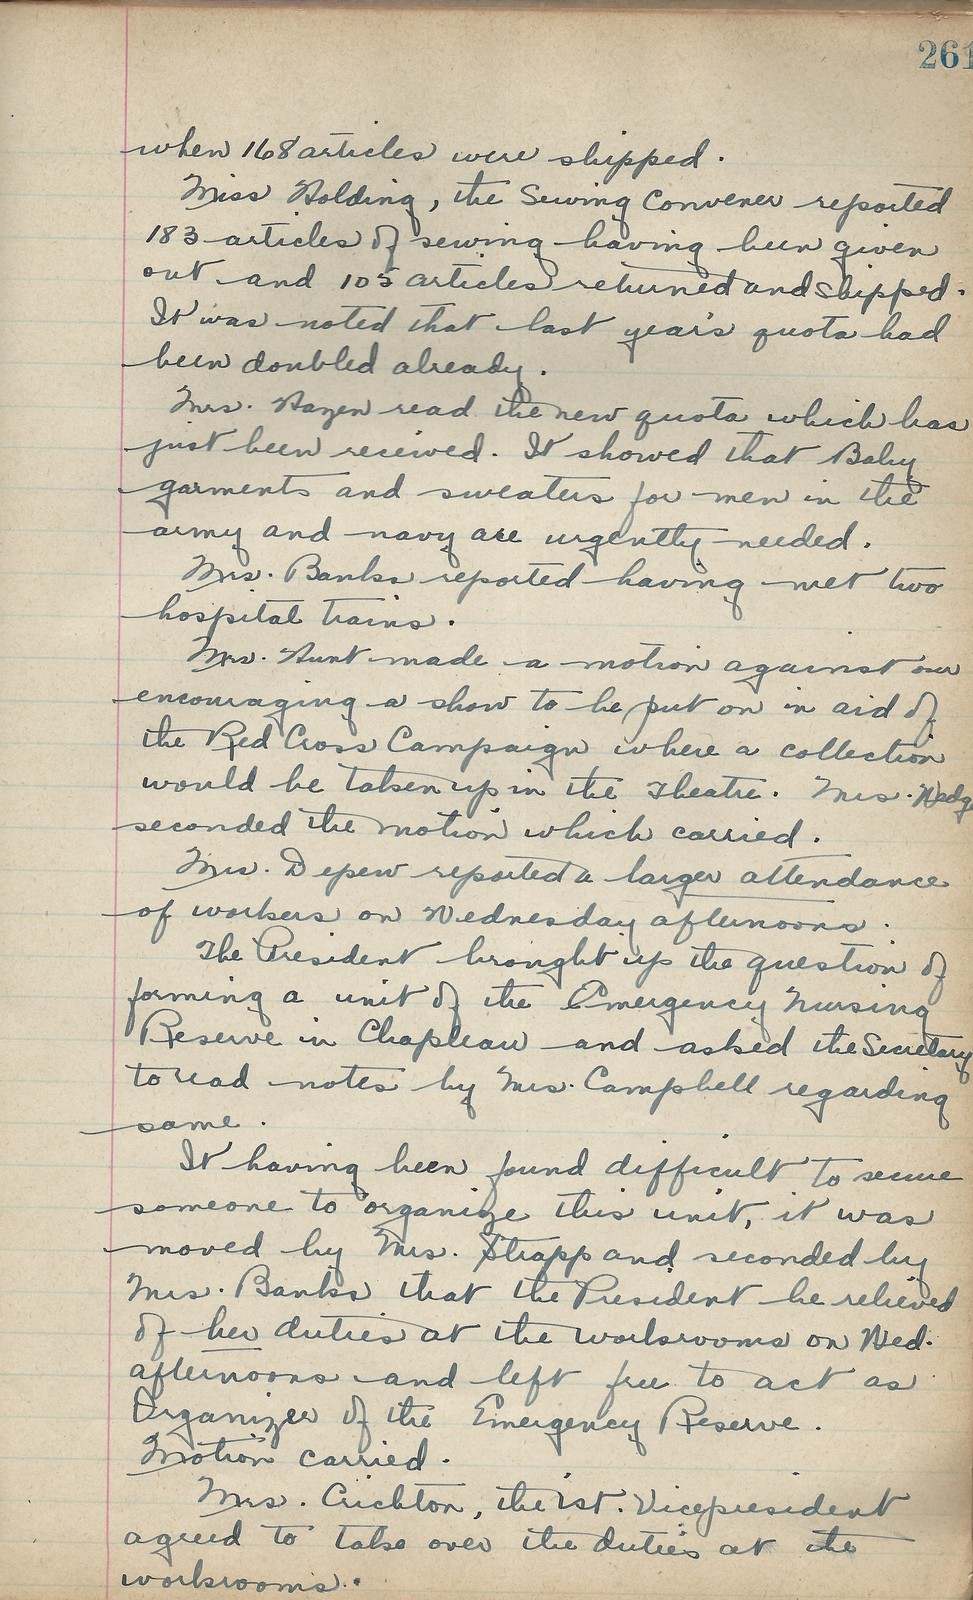 261
when 168 articles were shipped.
Miss Holding, the Sewing Convener reported
183 articles of sewing having been given
out and 105 articles returned and shipped.
It was noted that last year's quota had
been doubled already.
Mrs. Hazen read the new quota which has
just been received. It showed that Baby
garments and sweaters for men in the
army and navy are urgently needed.
Mrs. Banks reported having met two
hospital trains.
Mrs. Hunt made a motion against our
encouraging a show to be put on in aid of
the Red Cross Campaign where a collection
would be taken up in the Theatre. Mrs.
seconded the motion which carried.
Mrs. Depew reported a larger attendance
of workers on Wednesday afternoons.
The President brought up the question of
forming a unit of the Emergency Nursing
Reserve in Chapleau and asked the Secretary
to read notes by Mrs. Campbell regarding
same.
It having been found difficult to secure
someone to organize this unit, it was
moved by Mrs. Strapp and seconded by
Mrs. Banks that the President be relieved
of her duties at the workrooms on Wed.
afternoons and left free to act as
Organizer of the Emergency Reserve.
Motion carried.
Mrs. Crichton, the 1st. Vice president
agreed to take over the duties at the
workrooms.